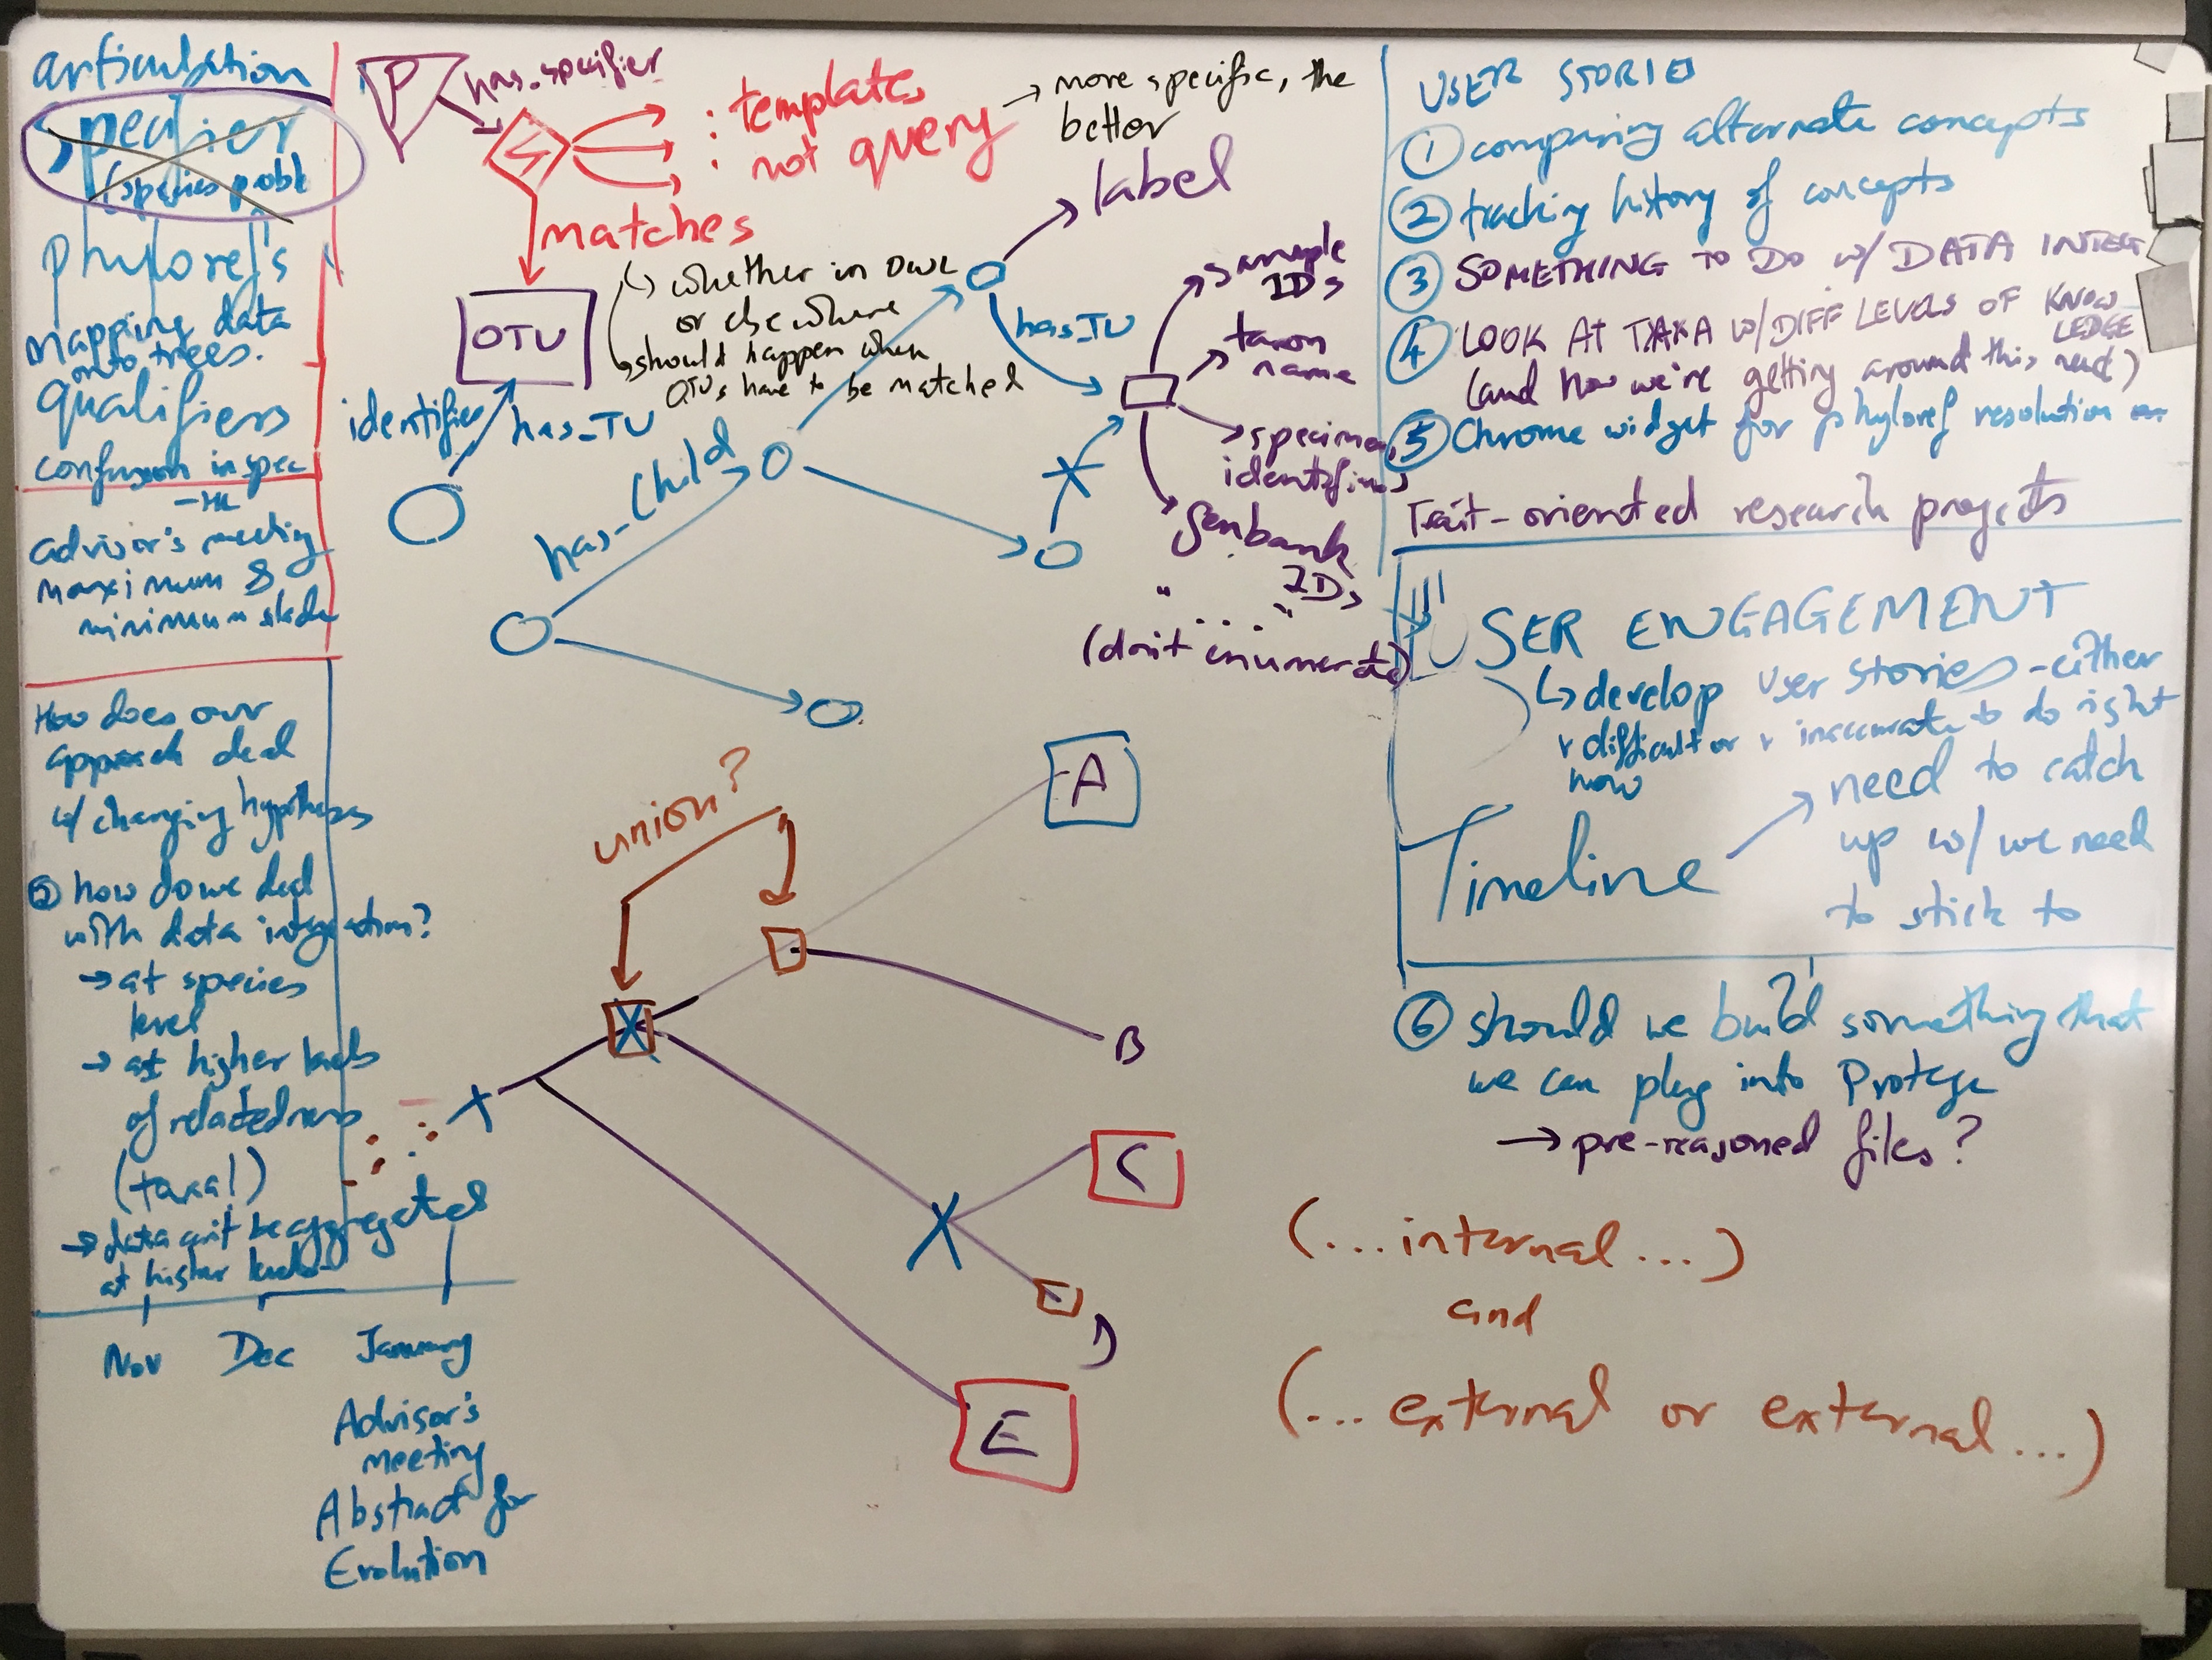 articulation
Specifier
(species probl
phyloref's
mapping data
onto trees.
qualifiers
confusion in spec
advisor's meeting
maximum &
minimum
How does our
approach deal
w/ changing hypotheses
② how do we deal
with data integration?
→ at species
level
→ at higher levels
of relatedness
(taxa!)
→ data can't be aggregated
at higher levels
Nov Dec January
Advisor's
meeting
Abstract for
Evolution
P
has_specifier
: template,
: not query
→ more specific, the
better
matches
↳ whether in OWL
or elsewhere
↳ should happen when
OTUs have to be matched
OTU
identifies
has_TU
has_Child
label
has_TU
sample
IDs
taxon
name
specimen
identifiers
Genbank
IDs
" .... "
(don't enumerate)
union?
A
B
C
D
E
USER STORIES
① comparing alternate concepts
② tracking history of concepts
③ SOMETHING TO DO w/ DATA INTEG
④ LOOK AT TAXA w/DIFF LEVELS OF KNOW
LEDGE
(and how we're getting around this need)
⑤ Chrome widget for phyloref resolution
Trait-oriented research projects
USER ENGAGEMENT
↳ develop user stories - either
v difficult or v inaccurate to do right
now
Timeline
→ need to catch
up w/ we need
to stick to
⑥ should we build something that
we can plug into Protege
→ pre-reasoned files?
(...internal...)
and
(... external or external...)